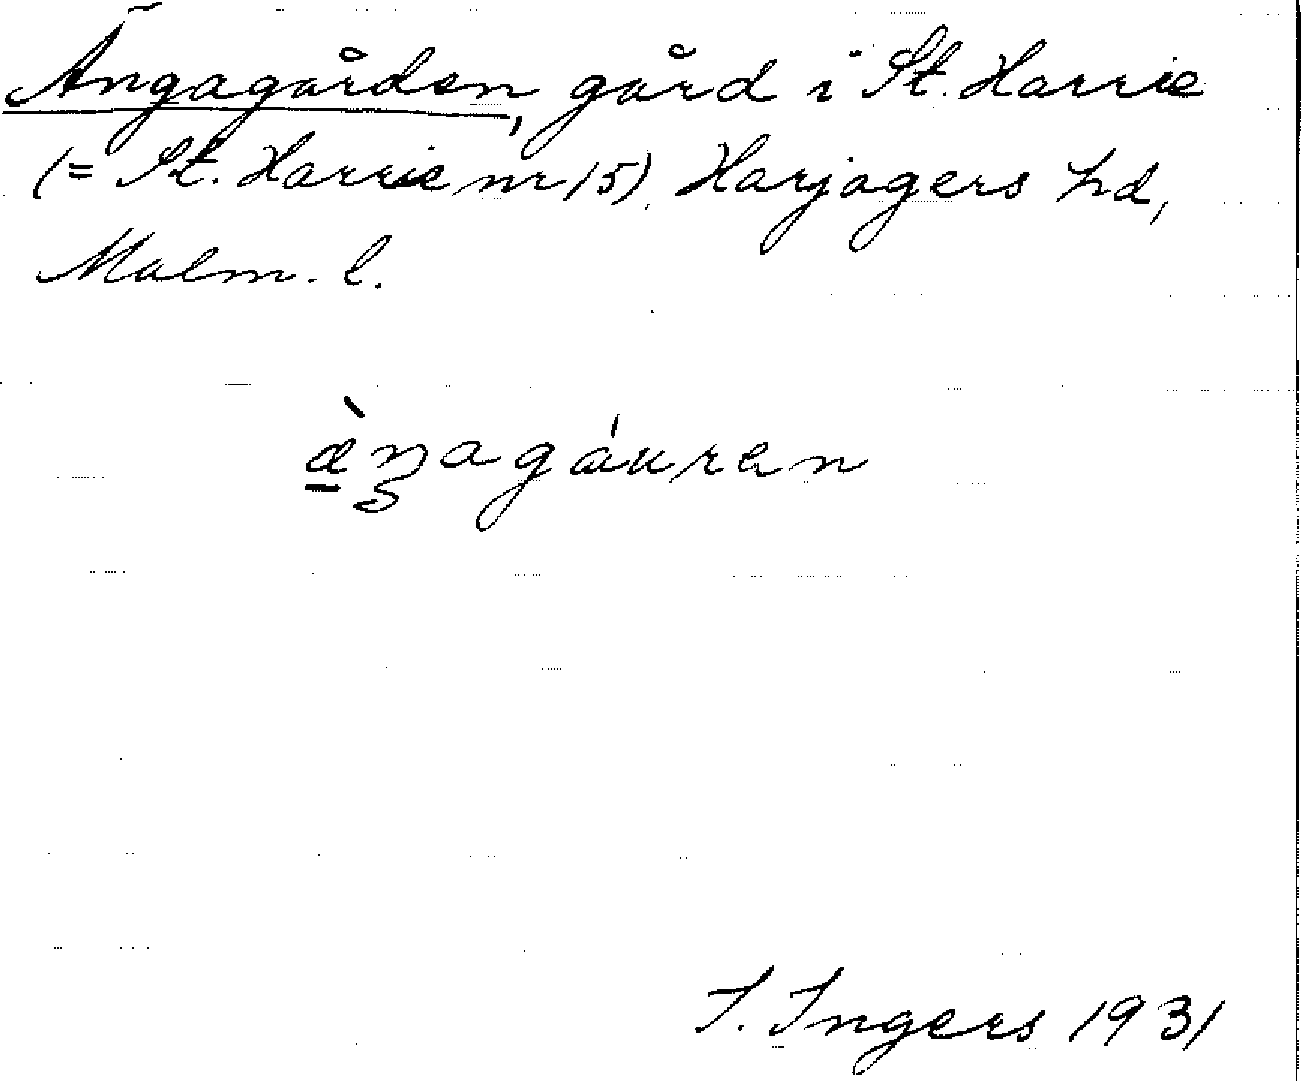 Ängagården, gård i St. Harrie
(= St. Harrie nr 15), Harjagers hd,
Malm. l.
æ̀ŋagáuren
I. Ingers 1931